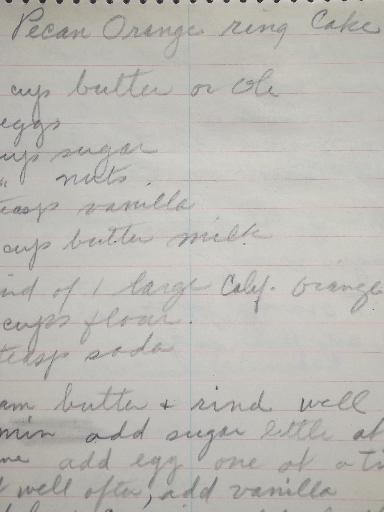 Pecan Orange ring Cake
cup butter or Ole
eggs
cup sugar
" nuts.
teasp vanilla
cup butter milk
ind of 1 large Calif. orange
cups flour.
teasp soda
am butter + rind well
min add sugar little at
me add egg one at a ti
well after, add vanilla